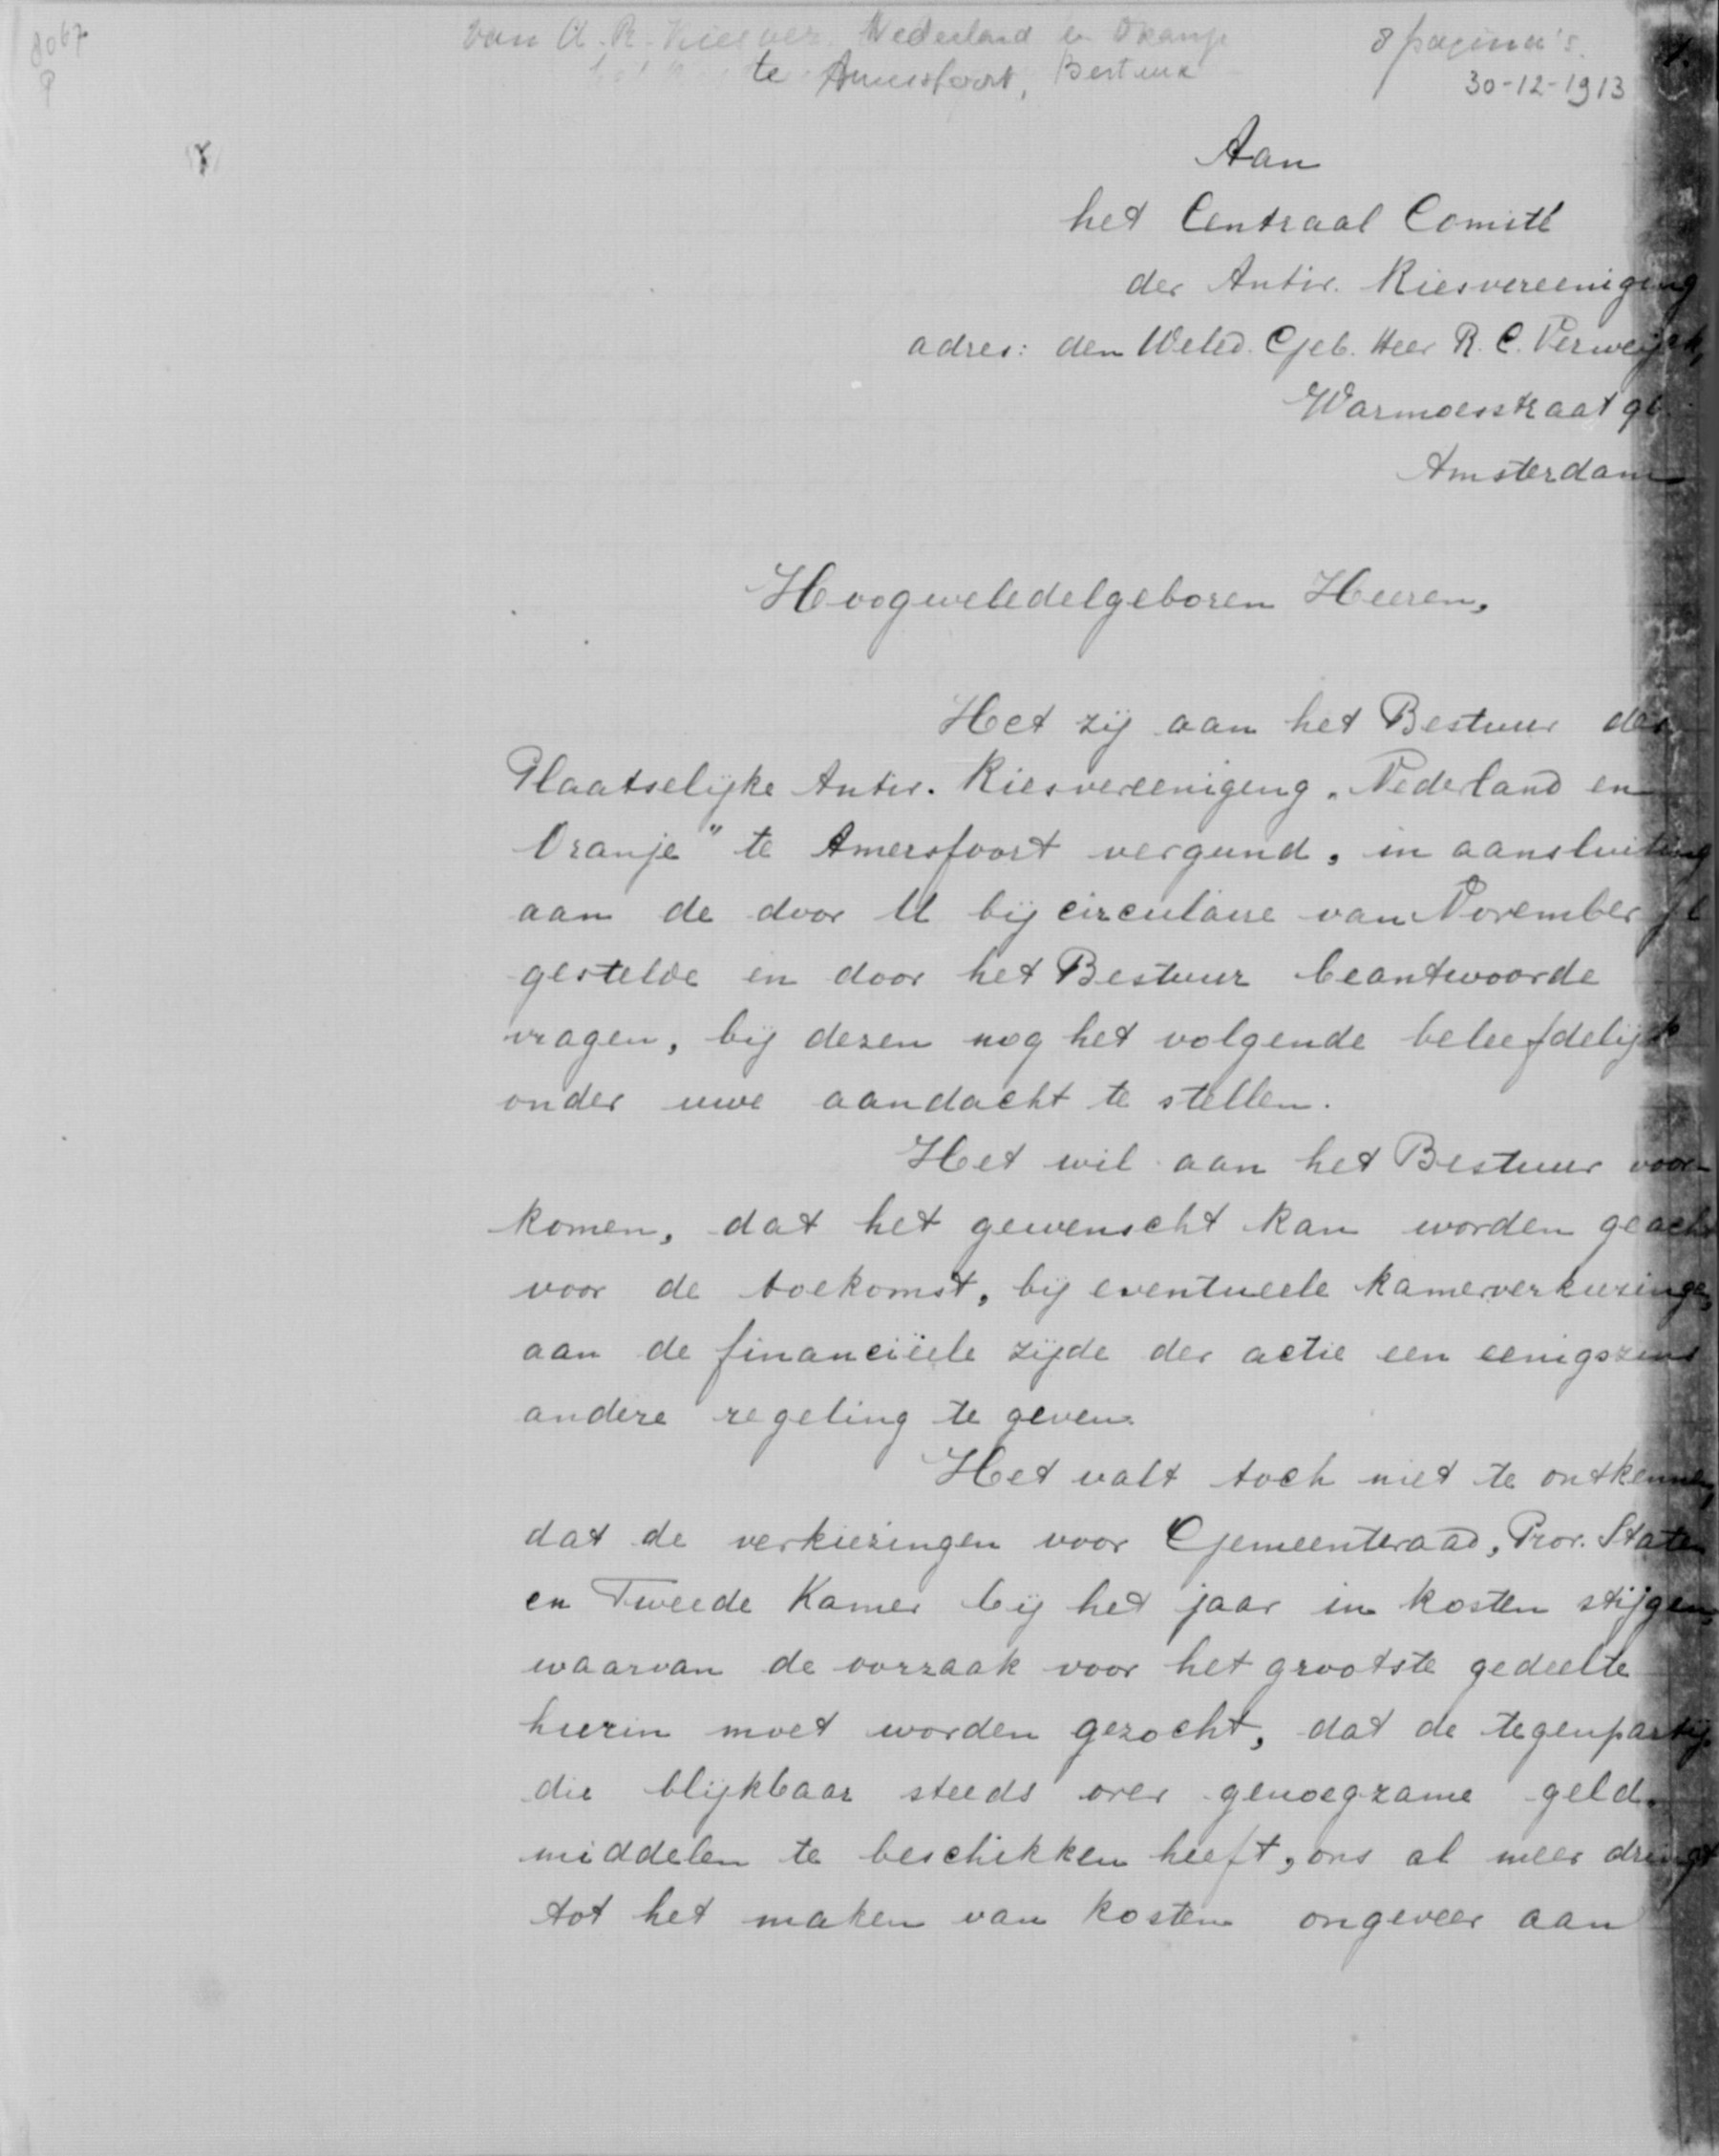 8067
P
van A. R. Kiesver. Nederland en Oranje
te Amersfoort, Bestuur
8 pagina's.
30-12-1913
1.
Aan
het Centraal Comité
der Antir. Kiesvereeniging
adres: den Weled. Geb. Heer R. C. Verweijck,
Warmoesstraat 96.
Amsterdam
Hoogweledelgeboren Heeren,
Het zij aan het Bestuur der
Plaatselijke Antir. Kiesvereeniging „Nederland en
Oranje" te Amersfoort vergund, in aansluiting
aan de door U bij circulaire van November jl
gestelde en door het Bestuur beantwoorde
vragen, bij dezen nog het volgende beleefdelijk
onder uwe aandacht te stellen.
Het wil aan het Bestuur voor-
komen, dat het gewenscht kan worden geacht
voor de toekomst, bij eventueele kamerverkiezingen,
aan de financiëele zijde der actie een eenigszins
andere regeling te geven.
Het valt toch niet te ontkennen,
dat de verkiezingen voor Gemeenteraad, Prov. Staten
en Tweede Kamer bij het jaar in kosten stijgen,
waarvan de oorzaak voor het grootste gedeelte
hierin moet worden gezocht, dat de tegenpartij,
die blijkbaar steeds over genoegzame geld-
middelen te beschikken heeft, ons al meer dringt
tot het maken van kosten ongeveer aan